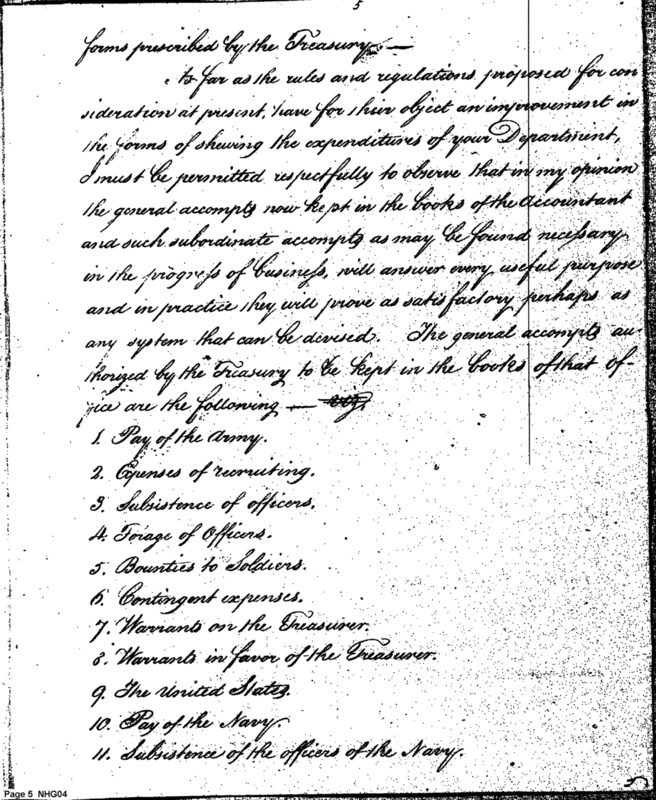 5
forms prescribed by the Treasury. —
As far as the rules and regulations proposed for con
sideration at present, have for their object an improvement in
the forms of shewing the expenditures of your Department,
I must be permitted respectfully to observe that in my opinion
the general accompts now kept in the books of the Accountant
and such subordinate accompts as may be found necessary
in the progress of business, will answer every useful purpose
and in practice they will prove as satisfactory perhaps as
any system that can be devised. The general accompts au-
thorized by the Treasury to be kept in the books of that of-
fice are the following —
1. Pay of the Army.
2. Expenses of recruiting.
3. Subsistence of officers.
4. Forage of Officers.
5. Bounties to Soldiers.
6. Contingent expenses.
7. Warrants on the Treasurer.
8. Warrants in favor of the Treasurer.
9. The United States.
10. Pay of the Navy.
11. Subsistence of the officers of the Navy.
Page 5 NHG04